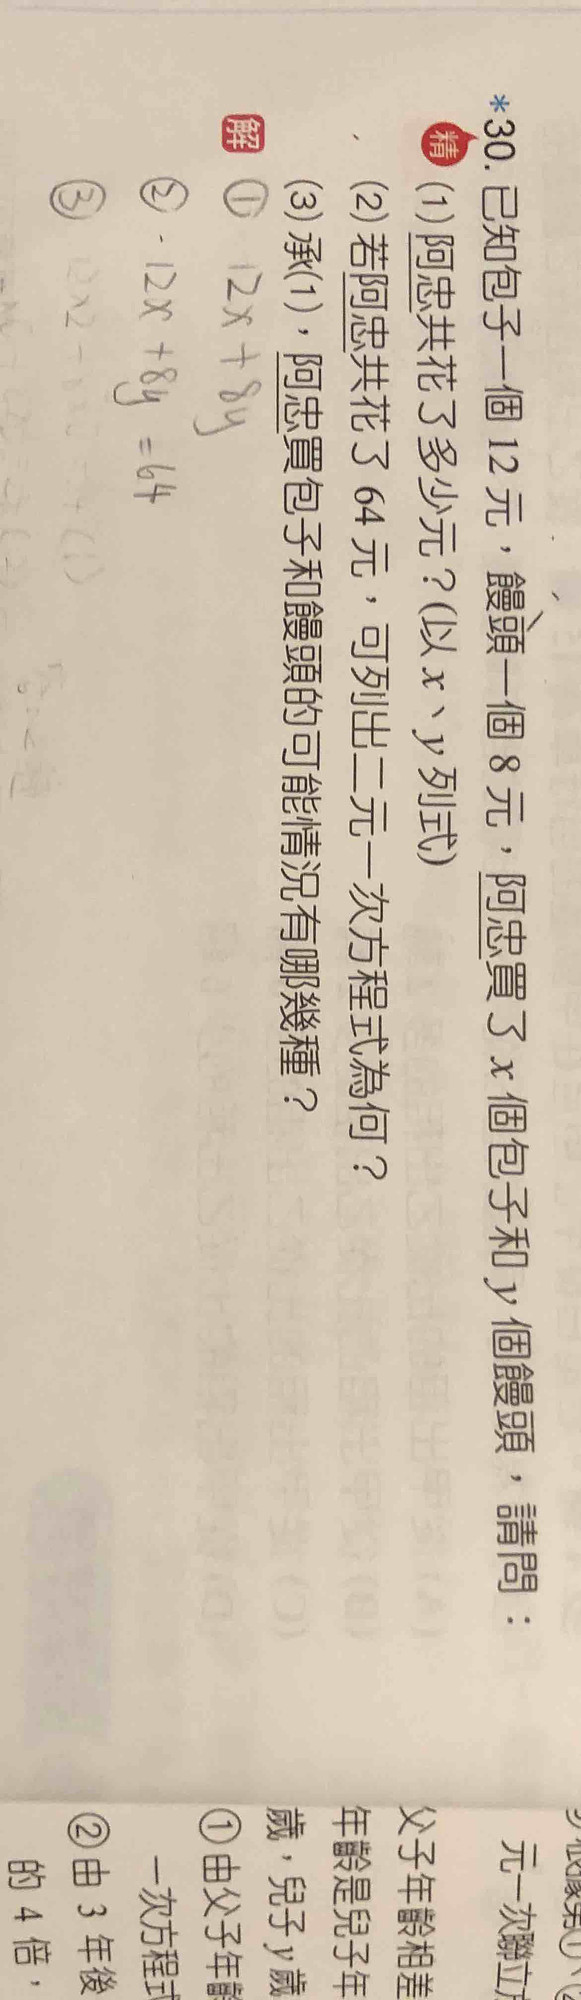 *30. 已知包子一個 12 元，饅頭一個 8 元，阿忠買了 x 個包子和 y 個饅頭，請問：
精 (1) 阿忠共花了多少元？(以 x、y 列式)
(2) 若阿忠共花了 64 元，可列出二元一次方程式為何？
(3) 承(1)，阿忠買包子和饅頭的可能情況有哪幾種？
解 ① 12x+8y
② 12x+8y=64
③
元一次聯立
父子年齡相差
年齡是兒子年
歲，兒子 y 歲
①由父子年齡
一次方程式
②由 3 年後
的 4 倍，